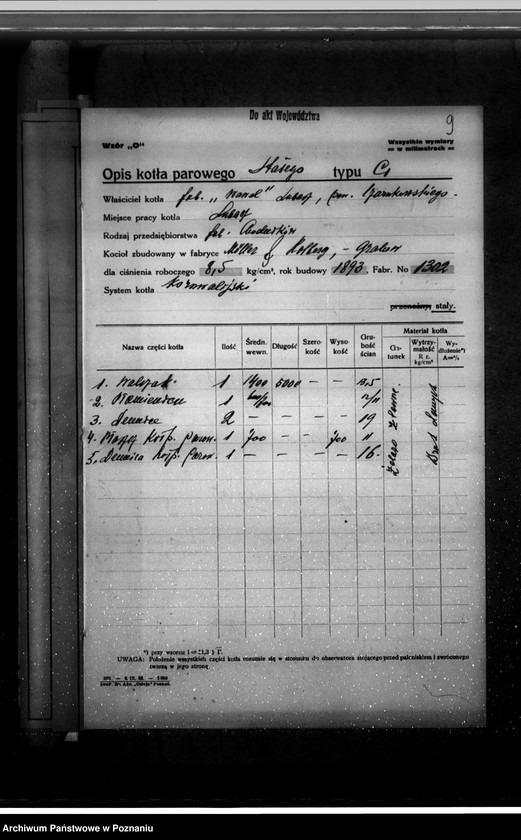 Do akt Województwa
9
Wzór „O"
Wszystkie wymiary
w milimetrach
Opis kotła parowego Stałego typu C1
Właściciel kotła fab. „Wanol" Lubasz, pow. Czarnkowskiego
Miejsce pracy kotła Lubasz
Rodzaj przedsiębiorstwa fab.
Kocioł zbudowany w fabryce Möller & Holberg, – Grabow
dla ciśnienia roboczego 8,5 kg/cm², rok budowy 1893, Fabr. No 1302
System kotła Kornwalijski
przenośny, stały.
Nazwa części kotła Ilość Średn. wewn. Długość Szerokość Wysokość Grubość ścian Materiał kotła
Gatunek Wytrzymałość R z. kg/cm² Wydłużenie*) A=%
1. Walczak 1 1400 5000 – – 13.5
2. Płomienica 1 – – 12/11
3. Dennice 2 – – – 19
4. Płaszcz Kołp. parow. 1 700 – – 700 11
5. Dennica Kołp. Parow. 1 – – – – 16
Żelazo zlewne
Brak danych
*) przy wzorze l = 11,3 √F.
UWAGA: Położenie wszystkich części kotła rozumie się w stosunku do obserwatora stojącego przed paleniskiem i zwróconego
twarzą w jego stronę
Archiwum Państwowe w Poznaniu